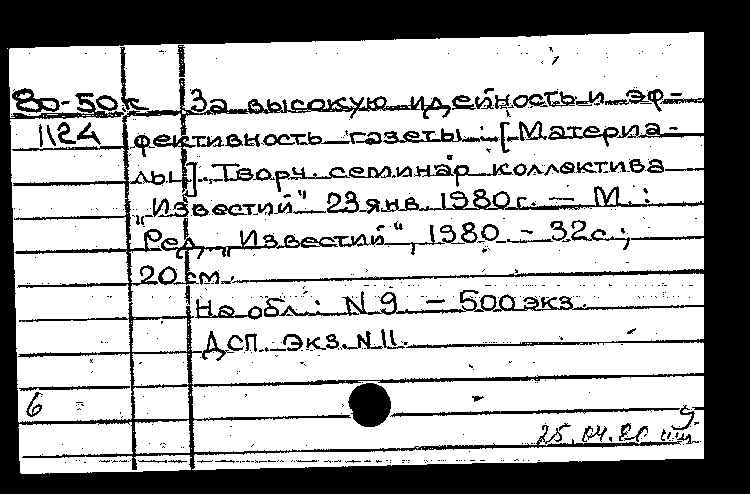 80-50к За высокую идейность и эф-
1124 фективность газеты: [Материа-
лы]. Творч. семинар коллектива
"Известий" 23 янв. 1980 г. — М.:
Ред. "Известий", 1980. - 32 с.;
20 см.
На обл.: N 9. - 500 экз.
ДСП. Экз. N 11.
6
25.04.80